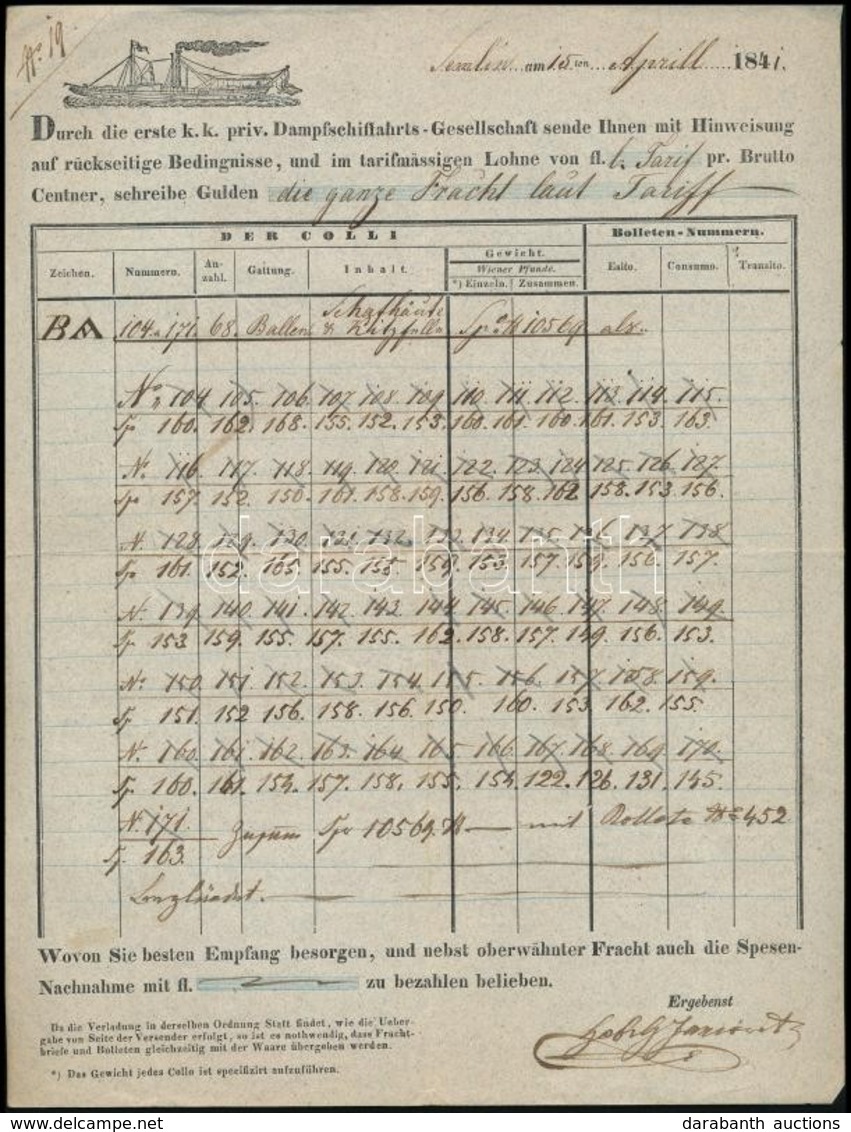 No. 19
Semlin am 15ten Aprill 1841.
Durch die erste k. k. priv. Dampfschiffahrts-Gesellschaft sende Ihnen mit Hinweisung
auf rückseitige Bedingnisse, und im tarifmässigen Lohne von fl. l. Tarif pr. Brutto
Centner, schreibe Gulden die ganze Fracht laut Tariff
DER COLLI
Bolleten-Nummern.
Zeichen. Nummern. An-zahl. Gattung. Inhalt. Gewicht. Esito. Consumo. Transito.
Wiener Pfunde.
*) Einzeln. Zusammen.
BA 104 a 171. 68. Ballen Schafhäute & Kitzfelle Spo 10569 als..
No. 104. 105. 106. 107. 108. 109. 110. 111. 112. 113. 114. 115.
Sp 160. 162. 168. 155. 152. 153. 160. 161. 160. 161. 153. 163.
No. 116. 117. 118. 119. 120. 121. 122. 123. 124. 125. 126. 127.
Spo 157. 152. 150. 161. 158. 159. 156. 158. 162. 158. 153. 156.
N. 128. 129. 130. 131. 132. 133. 134. 135. 136. 137. 138
Spo 161. 152. 165. 155. 158. 159. 153. 157. 159. 156. 157.
N. 139. 140. 141. 142. 143. 144. 145. 146. 147. 148. 149.
Sp. 153. 159. 155. 157. 155. 162. 158. 157. 149. 156. 153.
No. 150. 151. 152. 153. 154. 155. 156. 157. 158. 159.
Sp. 151. 152 156. 158. 156. 150. 160. 153. 162. 155.
N. 160. 161. 162. 163. 164. 165. 166. 167. 168. 169. 170.
Sp. 160. 161. 154. 157. 158. 155. 154. 122. 126. 131. 145.
N. 171. Spo 10569 mit Bollete No 452
Sp. 163.
darabanth
Wovon Sie besten Empfang besorgen, und nebst oberwähnter Fracht auch die Spesen-
Nachnahme mit fl. zu bezahlen belieben.
Ergebenst
Da die Verladung in derselben Ordnung Statt findet, wie die Ueber-
gabe von Seite der Versender erfolgt, so ist es nothwendig, dass Fracht-
briefe und Bolleten gleichzeitig mit der Waare übergeben werden.
*) Das Gewicht jedes Collo ist spezifizirt aufzuführen.
www.darabanth.com
darabanth auctions